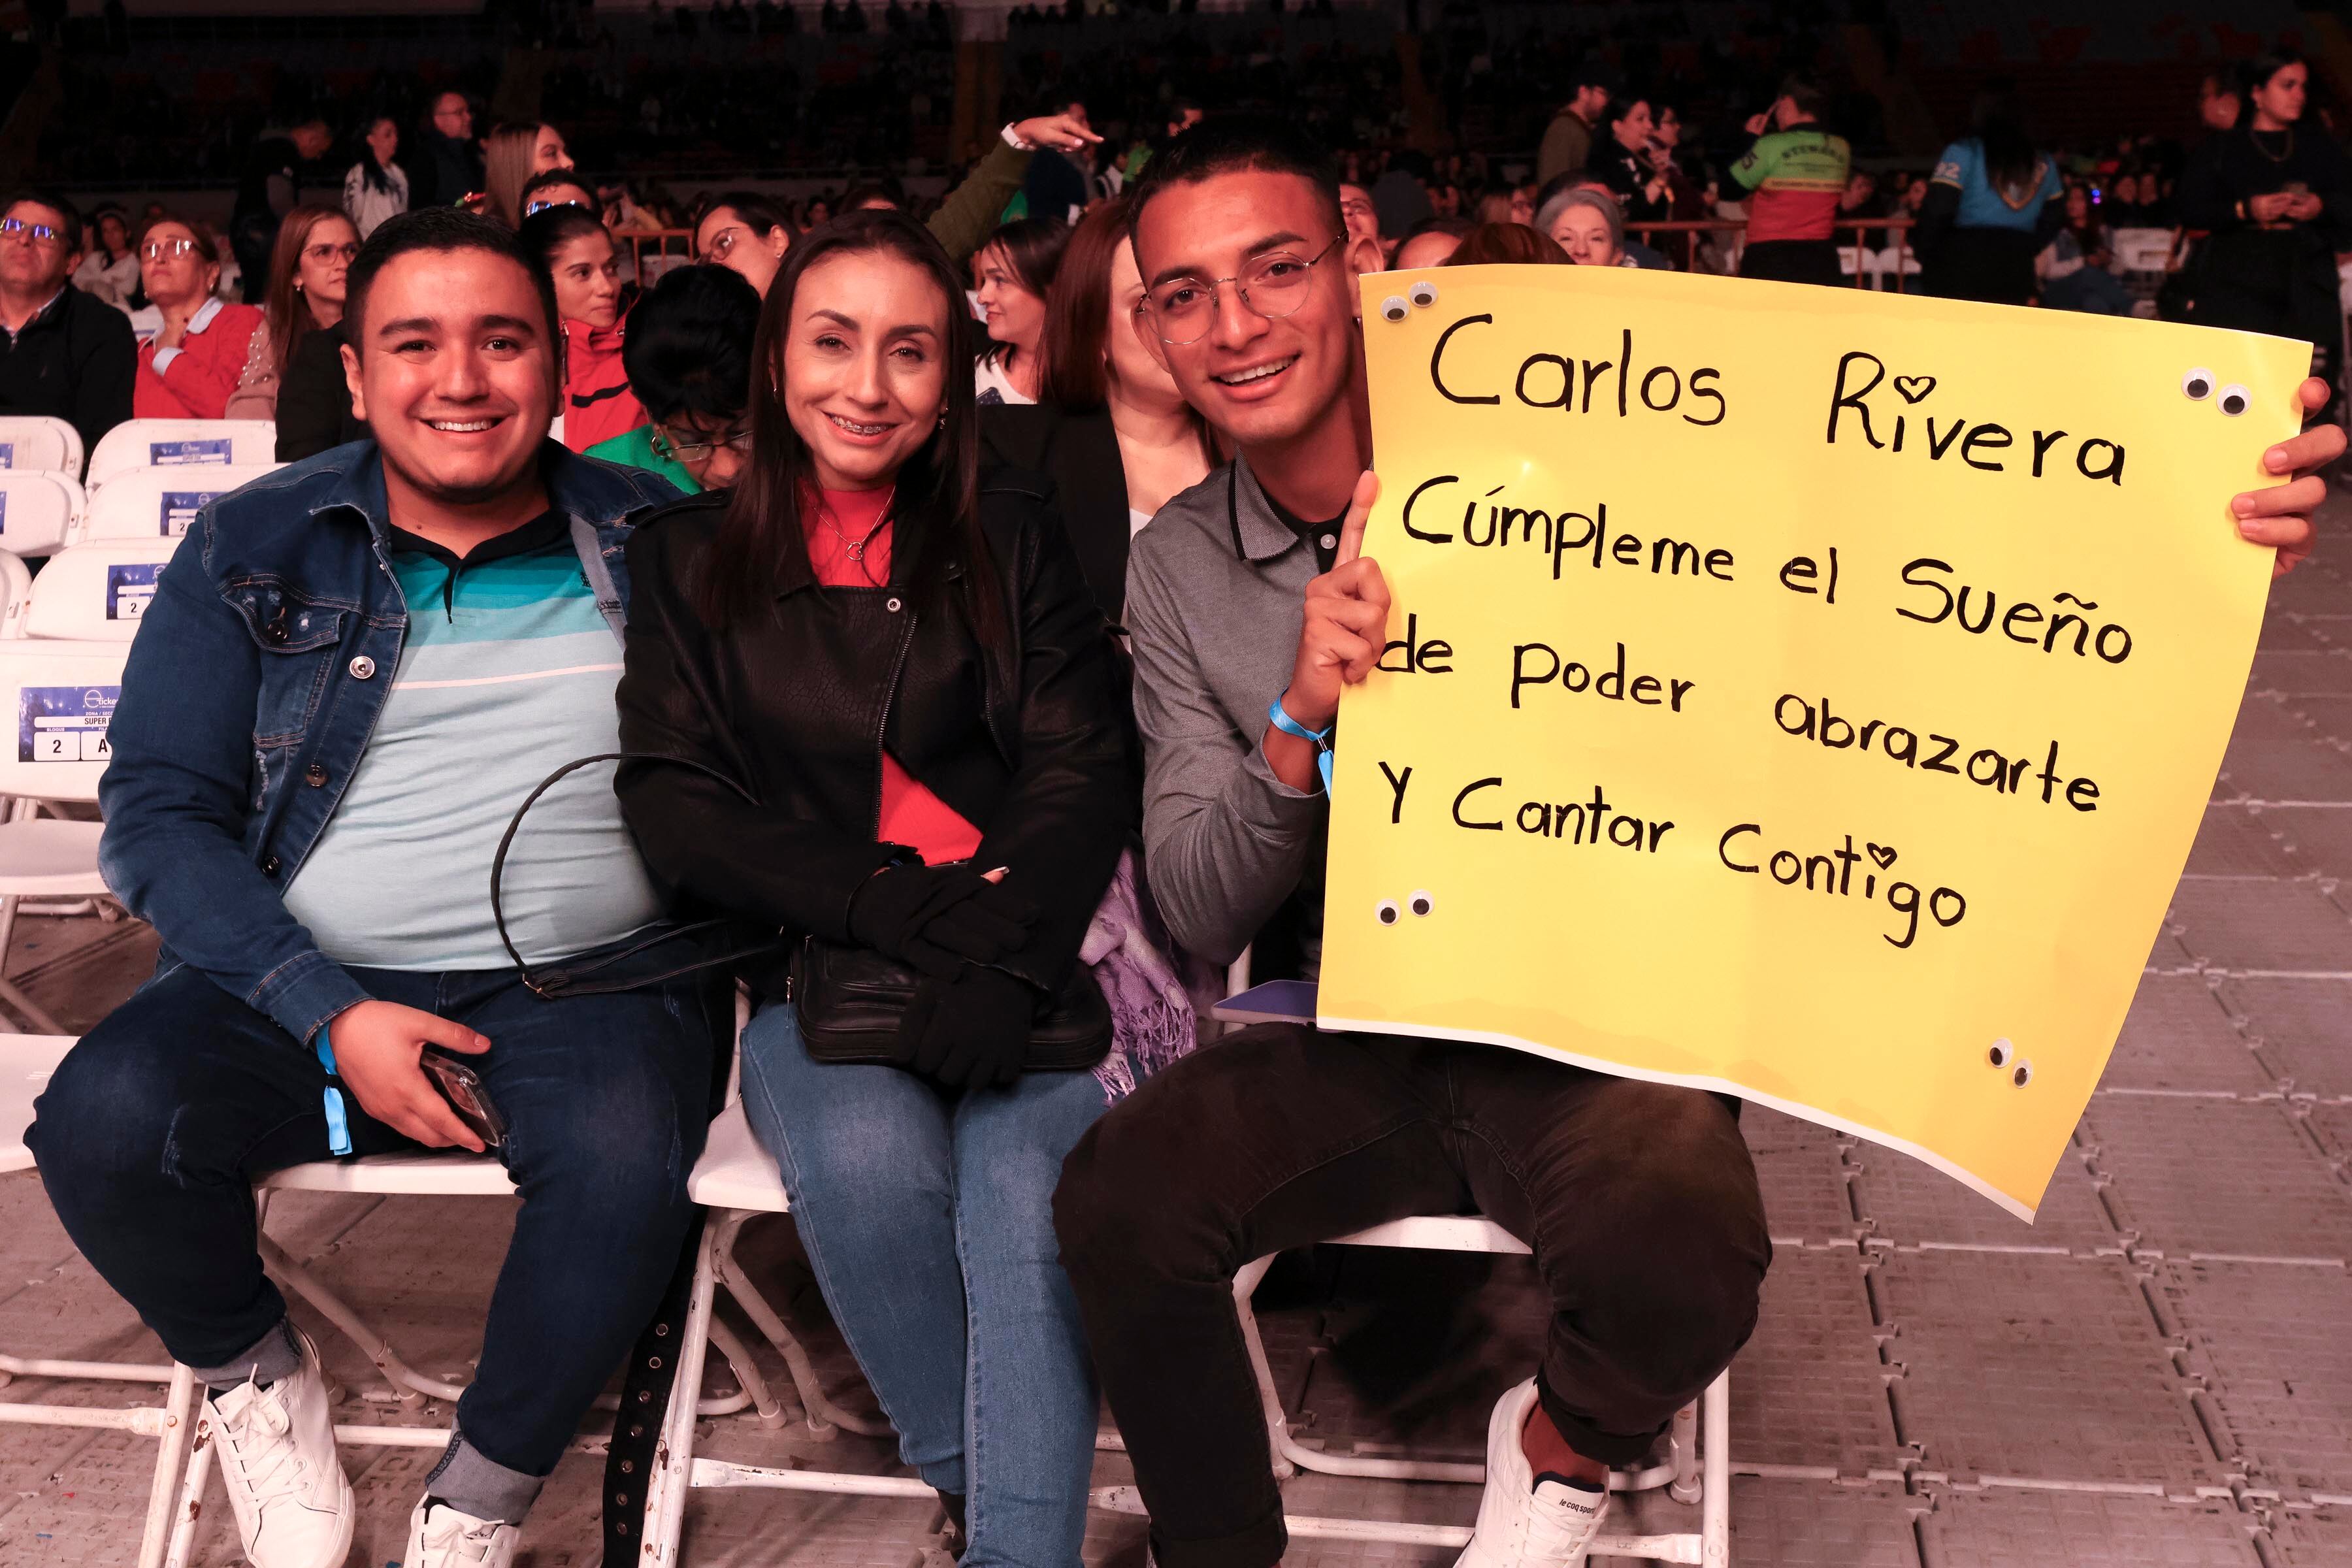 Carlos Rivera
Cúmpleme el Sueño
de poder abrazarte
Y Cantar Contigo
STEWARD
92
2
SUPER
2 A
le coq sportif